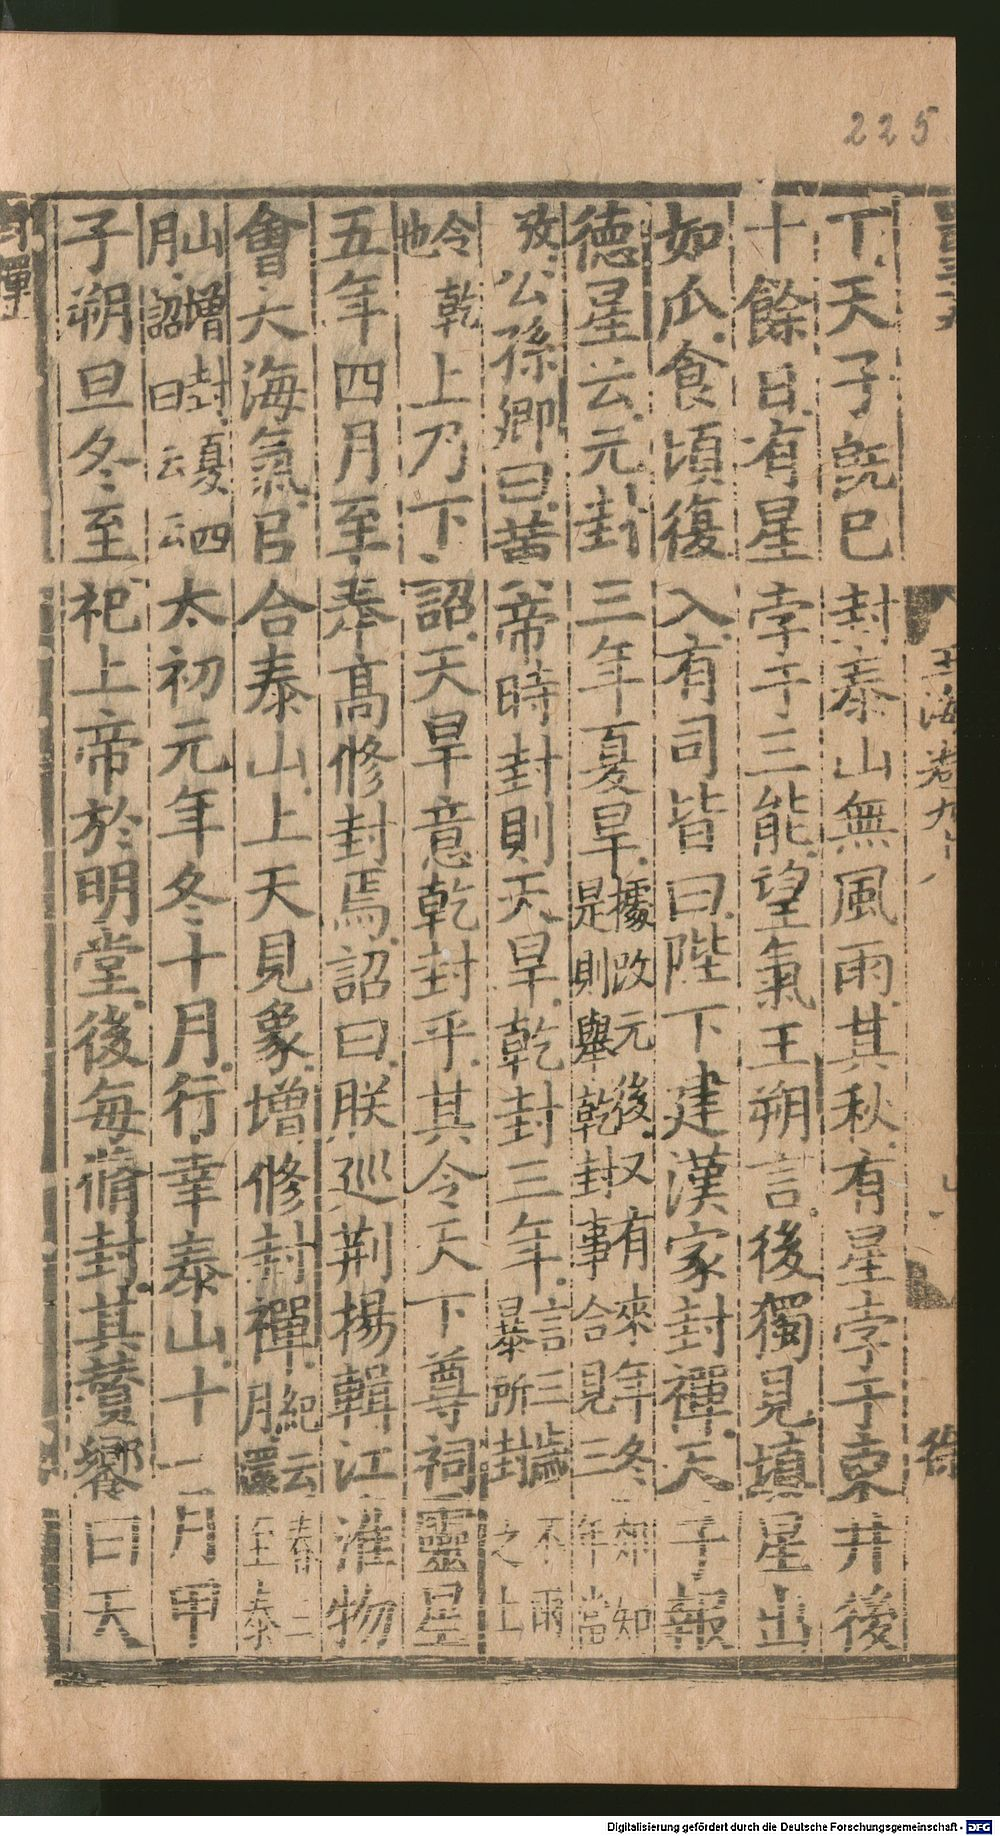 225
丁天子旣巳封泰山無風雨其秋有星孛于東井後
十餘日有星孛于三能望氣王朔言後獨見塡星出
如瓜食頃復入有司皆曰陛下建漢家封禪天子報
德星云元封三年夏旱據改元後又有來年冬知是則舉乾封事合見三年當
攷公孫卿曰黃帝時封則天旱乾封三年言三歲不雨暴所封之土
令乾也上乃下詔天旱意乾封乎其令天下尊祠靈星
五年四月至奉高修封焉詔曰朕巡荆揚輯江淮物
會大海氣官合泰山上天見象增修封禪紀云春三月還至泰
山增封夏四月詔曰云云太初元年冬十月行幸泰山十一月甲
子朔旦冬至祀上帝於明堂後每脩封其贊饗曰天
玉海卷九十八
封禪
Digitalisierung gefördert durch die Deutsche Forschungsgemeinschaft - DFG